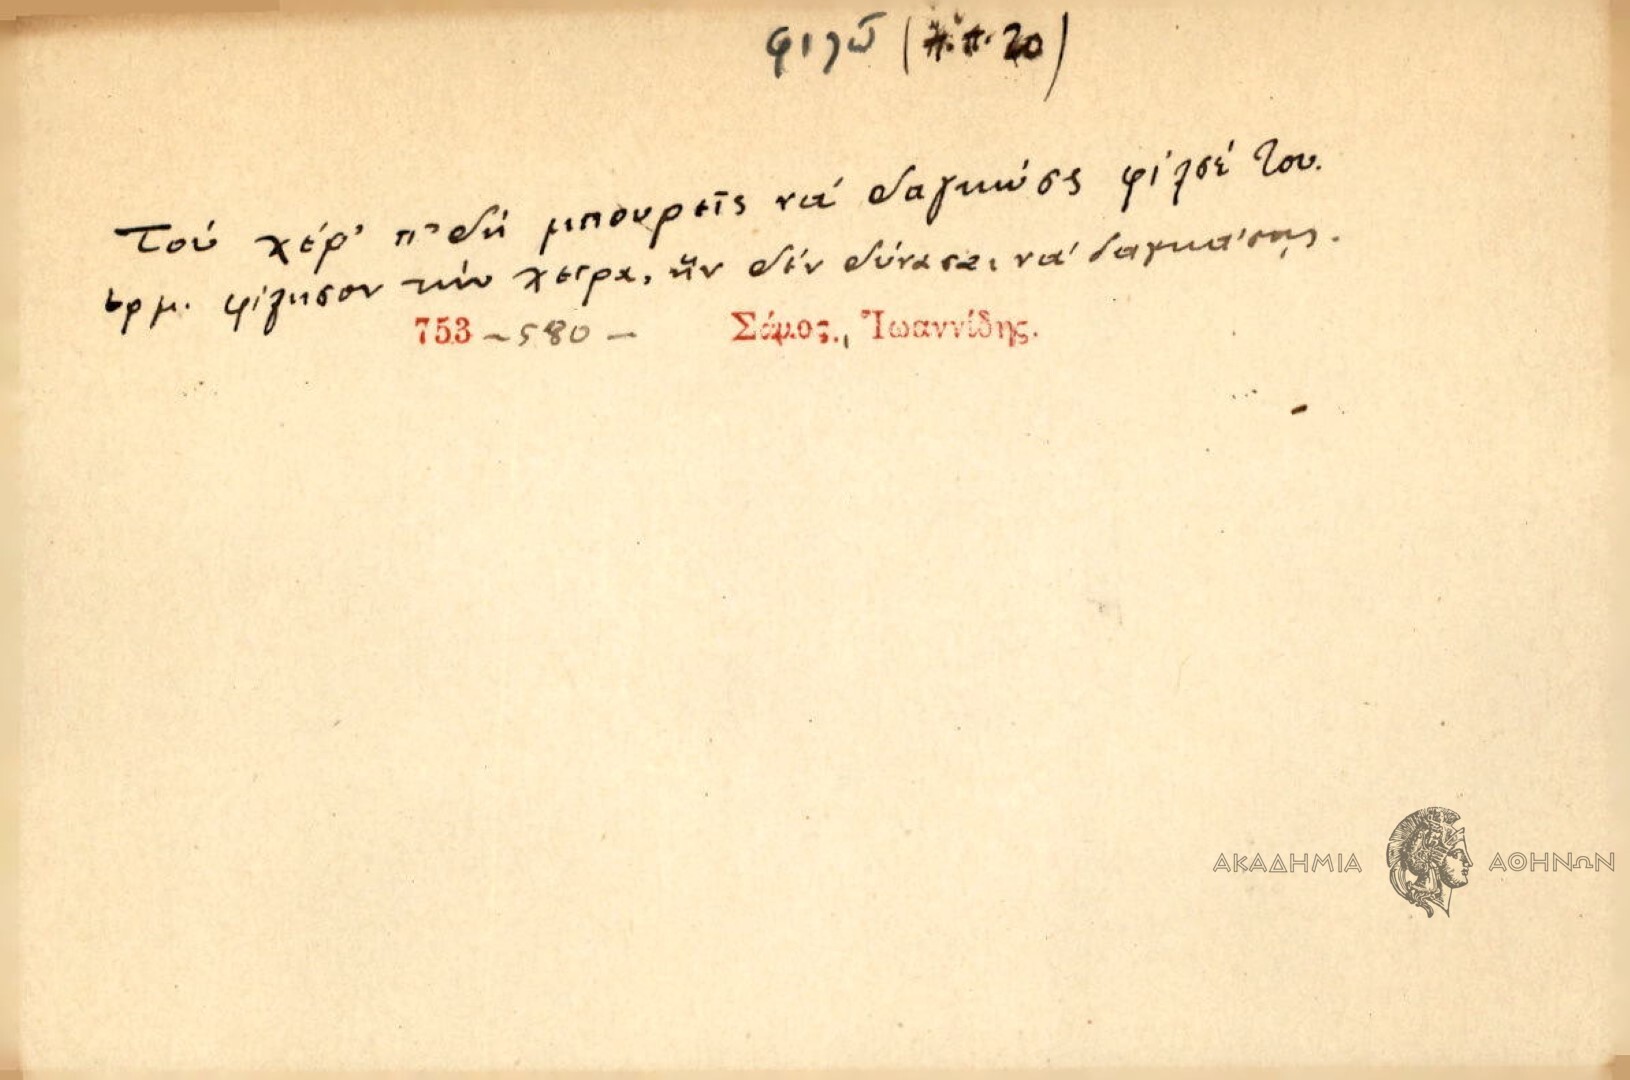 φιλῶ ( 20)
Τού χέρ' π' δή μπουρεῖς νά δαγκώσς φίλσέ του.
ερμ. φίλησον τήν χεῖρα, ἥν δέν δύνασαι νά δαγκάσῃς.
753 - 580 - Σάμος, Ἰωαννίδης.
ΑΚΑΔΗΜΙΑ ΑΘΗΝΩΝ